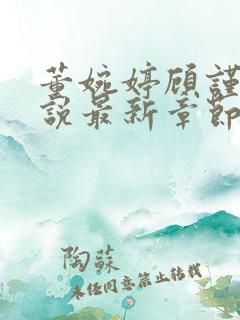 董婉婷顾谨
说最新章节
陶苏
未经同意禁止转载